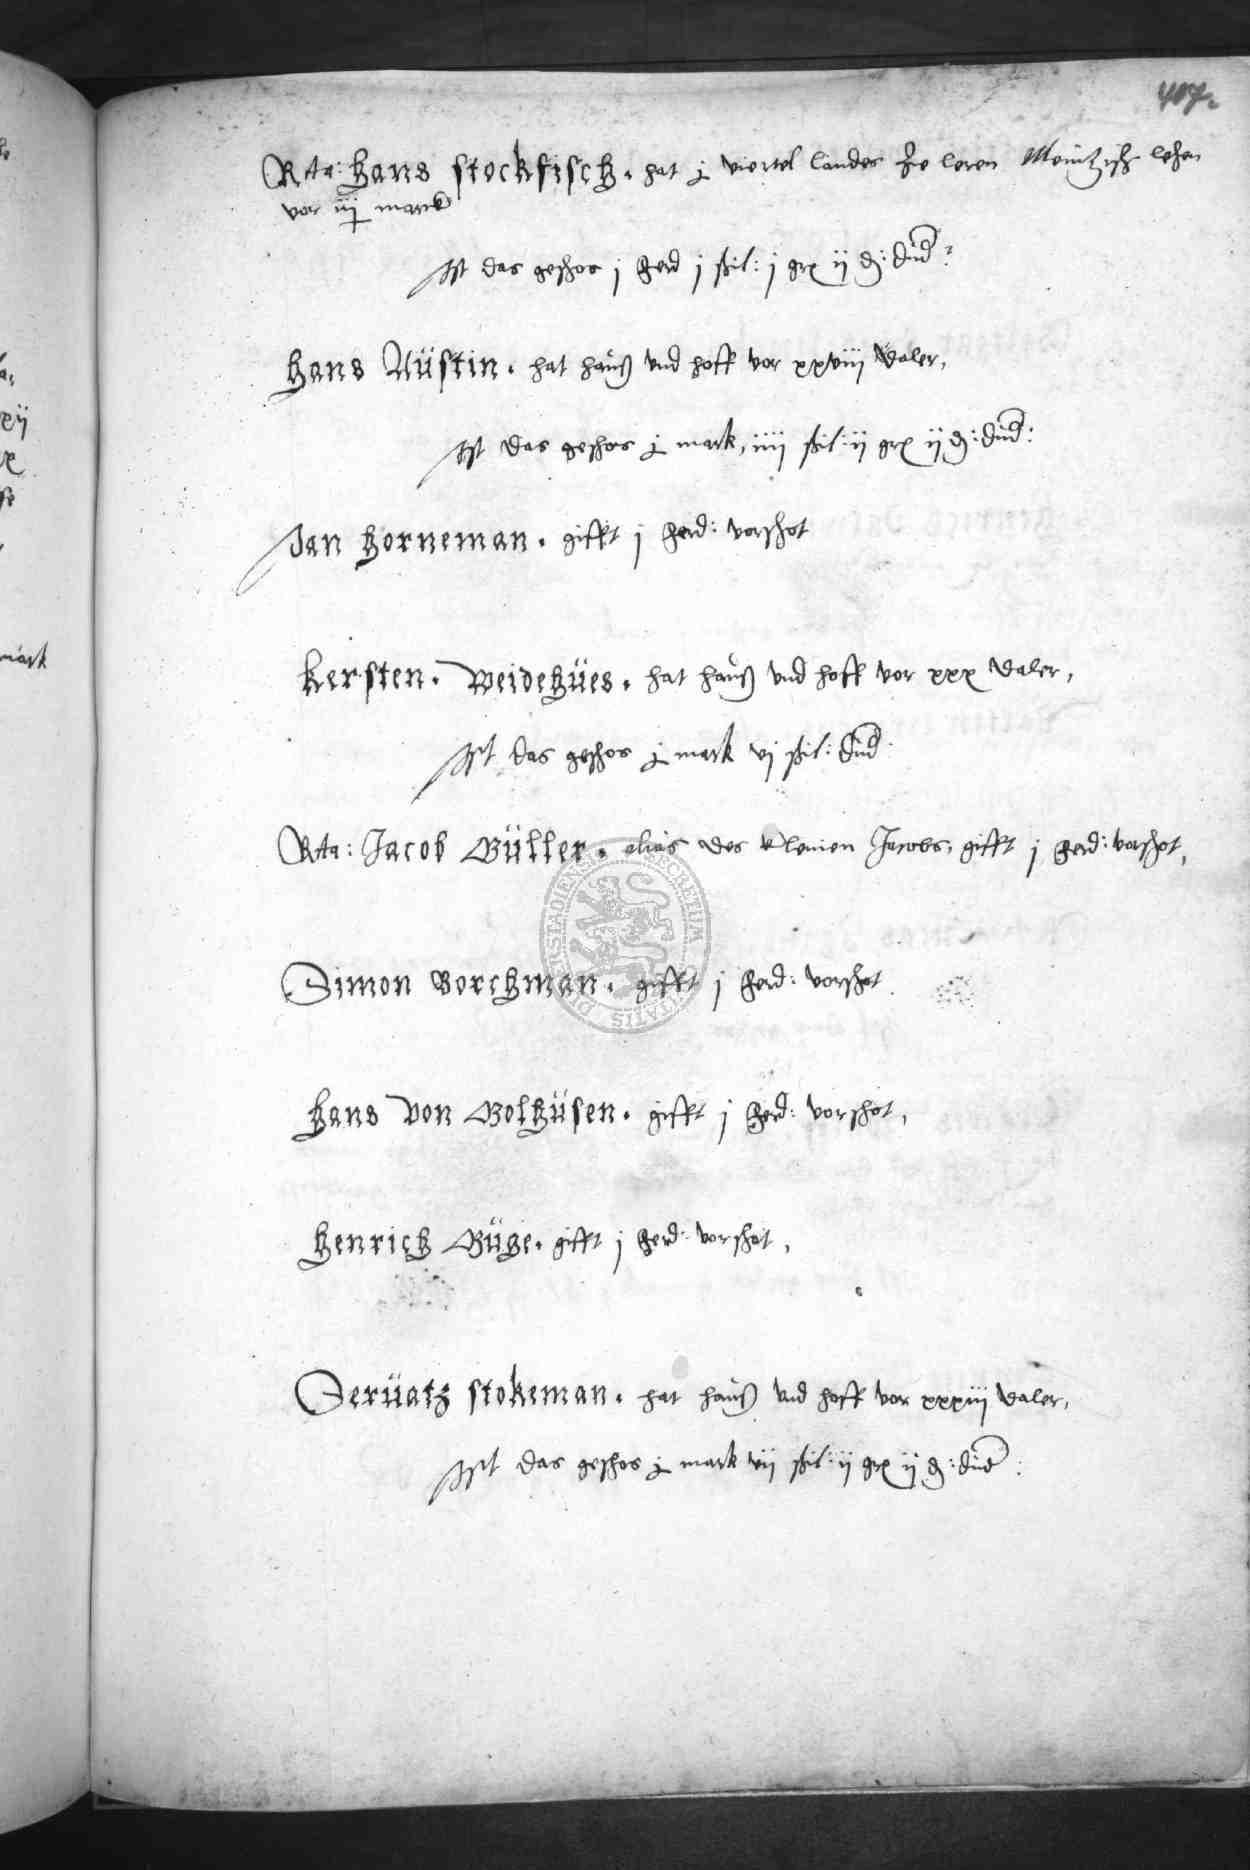 407.
Rta: Hans Stockfisch. hat j viertel landes Meintzisch lehen
vor iij marck
Ist das geshos j ferd j shil: j gr ij d: dud:
Hans Austin. hat hauß vnd hoff vor xxviii daler,
Ist das geshos j mark, iiii shil: ij gr ij d: dud:
Jan Horneman. gifft j ferd: vorshot
Kersten. Weidehües. hat hauß vnd hoff vor xxx daler,
Ist das geshos j mark vj shil: dud
Rta: Jacob Büller. alias des klenien Jacobs, gifft j ferd: vorshot,
Simon Borchman. gifft j ferd: vorshot
Hans von Bolhüsen. gifft j ferd: vorshot,
Henrich Büge. gifft j ferd: vorshot,
Serüatz Stokeman. hat hauß vnd hoff vor xxxiii daler,
Ist das geshos j mark vij shil: ij gr ij d: dud:
xij
x
mark
SECRETUM